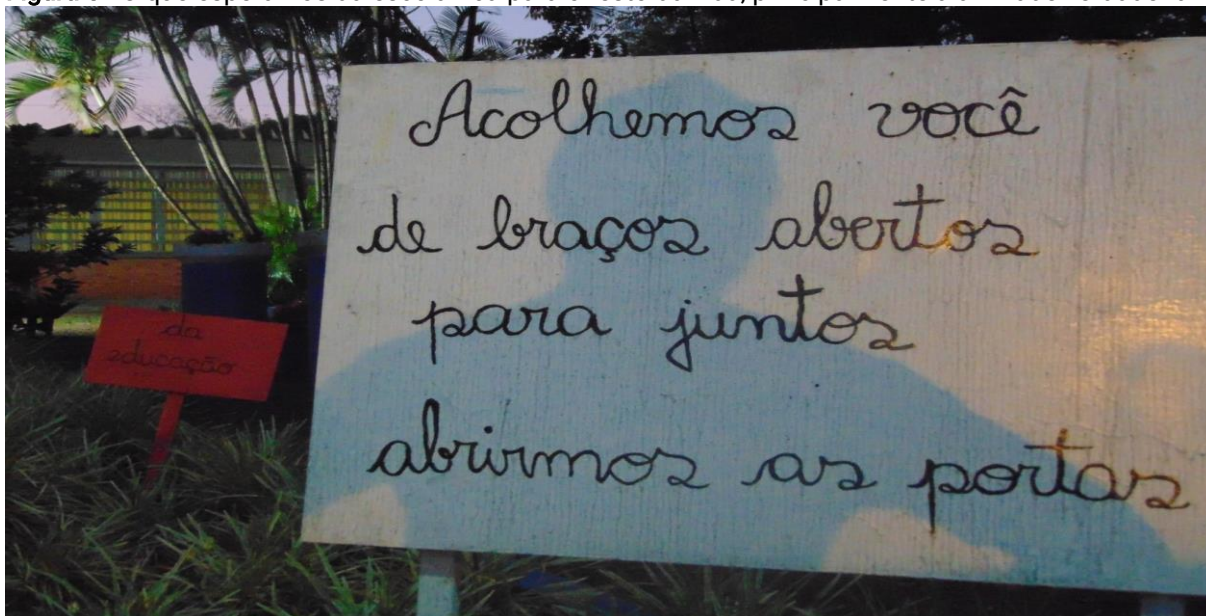 Acolhemos você
de braços abertos
para juntos
abrirmos as portas
da
educação